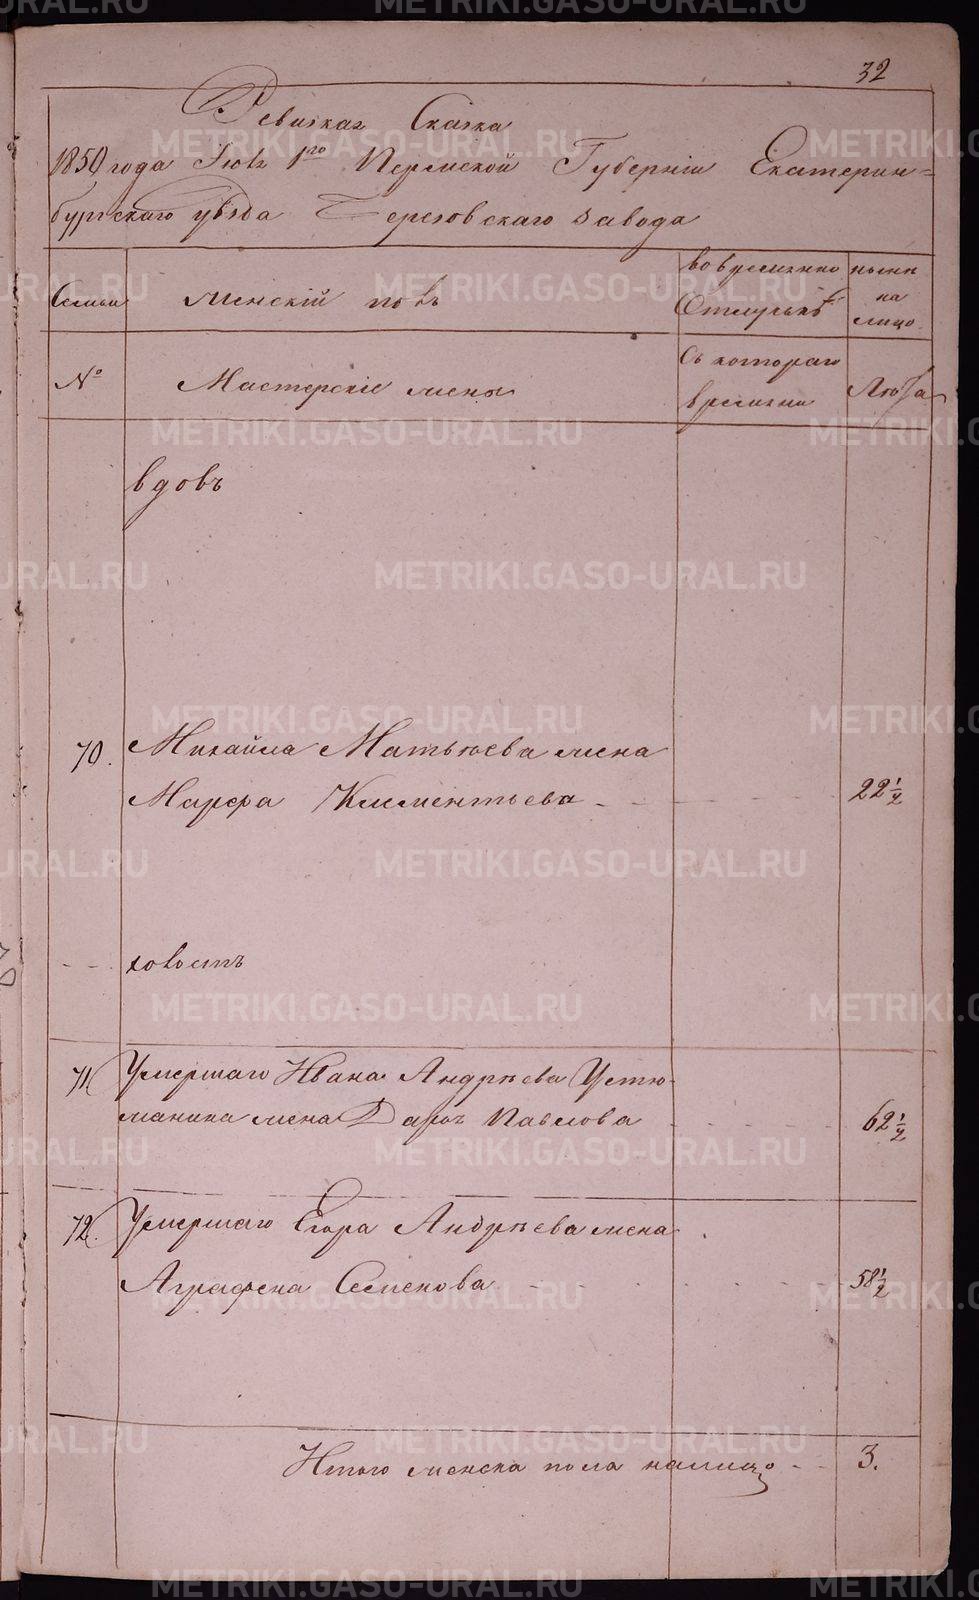 32
Ревизкая Сказка
1850 года Іюня 1го Пермской Губерніи Екатерин=
бургскаго уѣзда Березовскаго завода
Семьи
женскій полъ
во временно
Отлучкѣ
нынѣ
на
лицо
№
Мастерскіе жены
Съ котораго
времяни
Лѣта
вдовъ
70.
Михайла Матвѣева жена
Марфа Климентьева
22 1/2
холостъ
71
Умершаго Ивана Андрѣева Устю-
жанина жена Дарья Павлова
62 1/2
72.
Умершаго Егора Андрѣева жена
Аграфена Семенова
58 1/2
Итого женска пола налицо
3.
METRIKI.GASO-URAL.RU